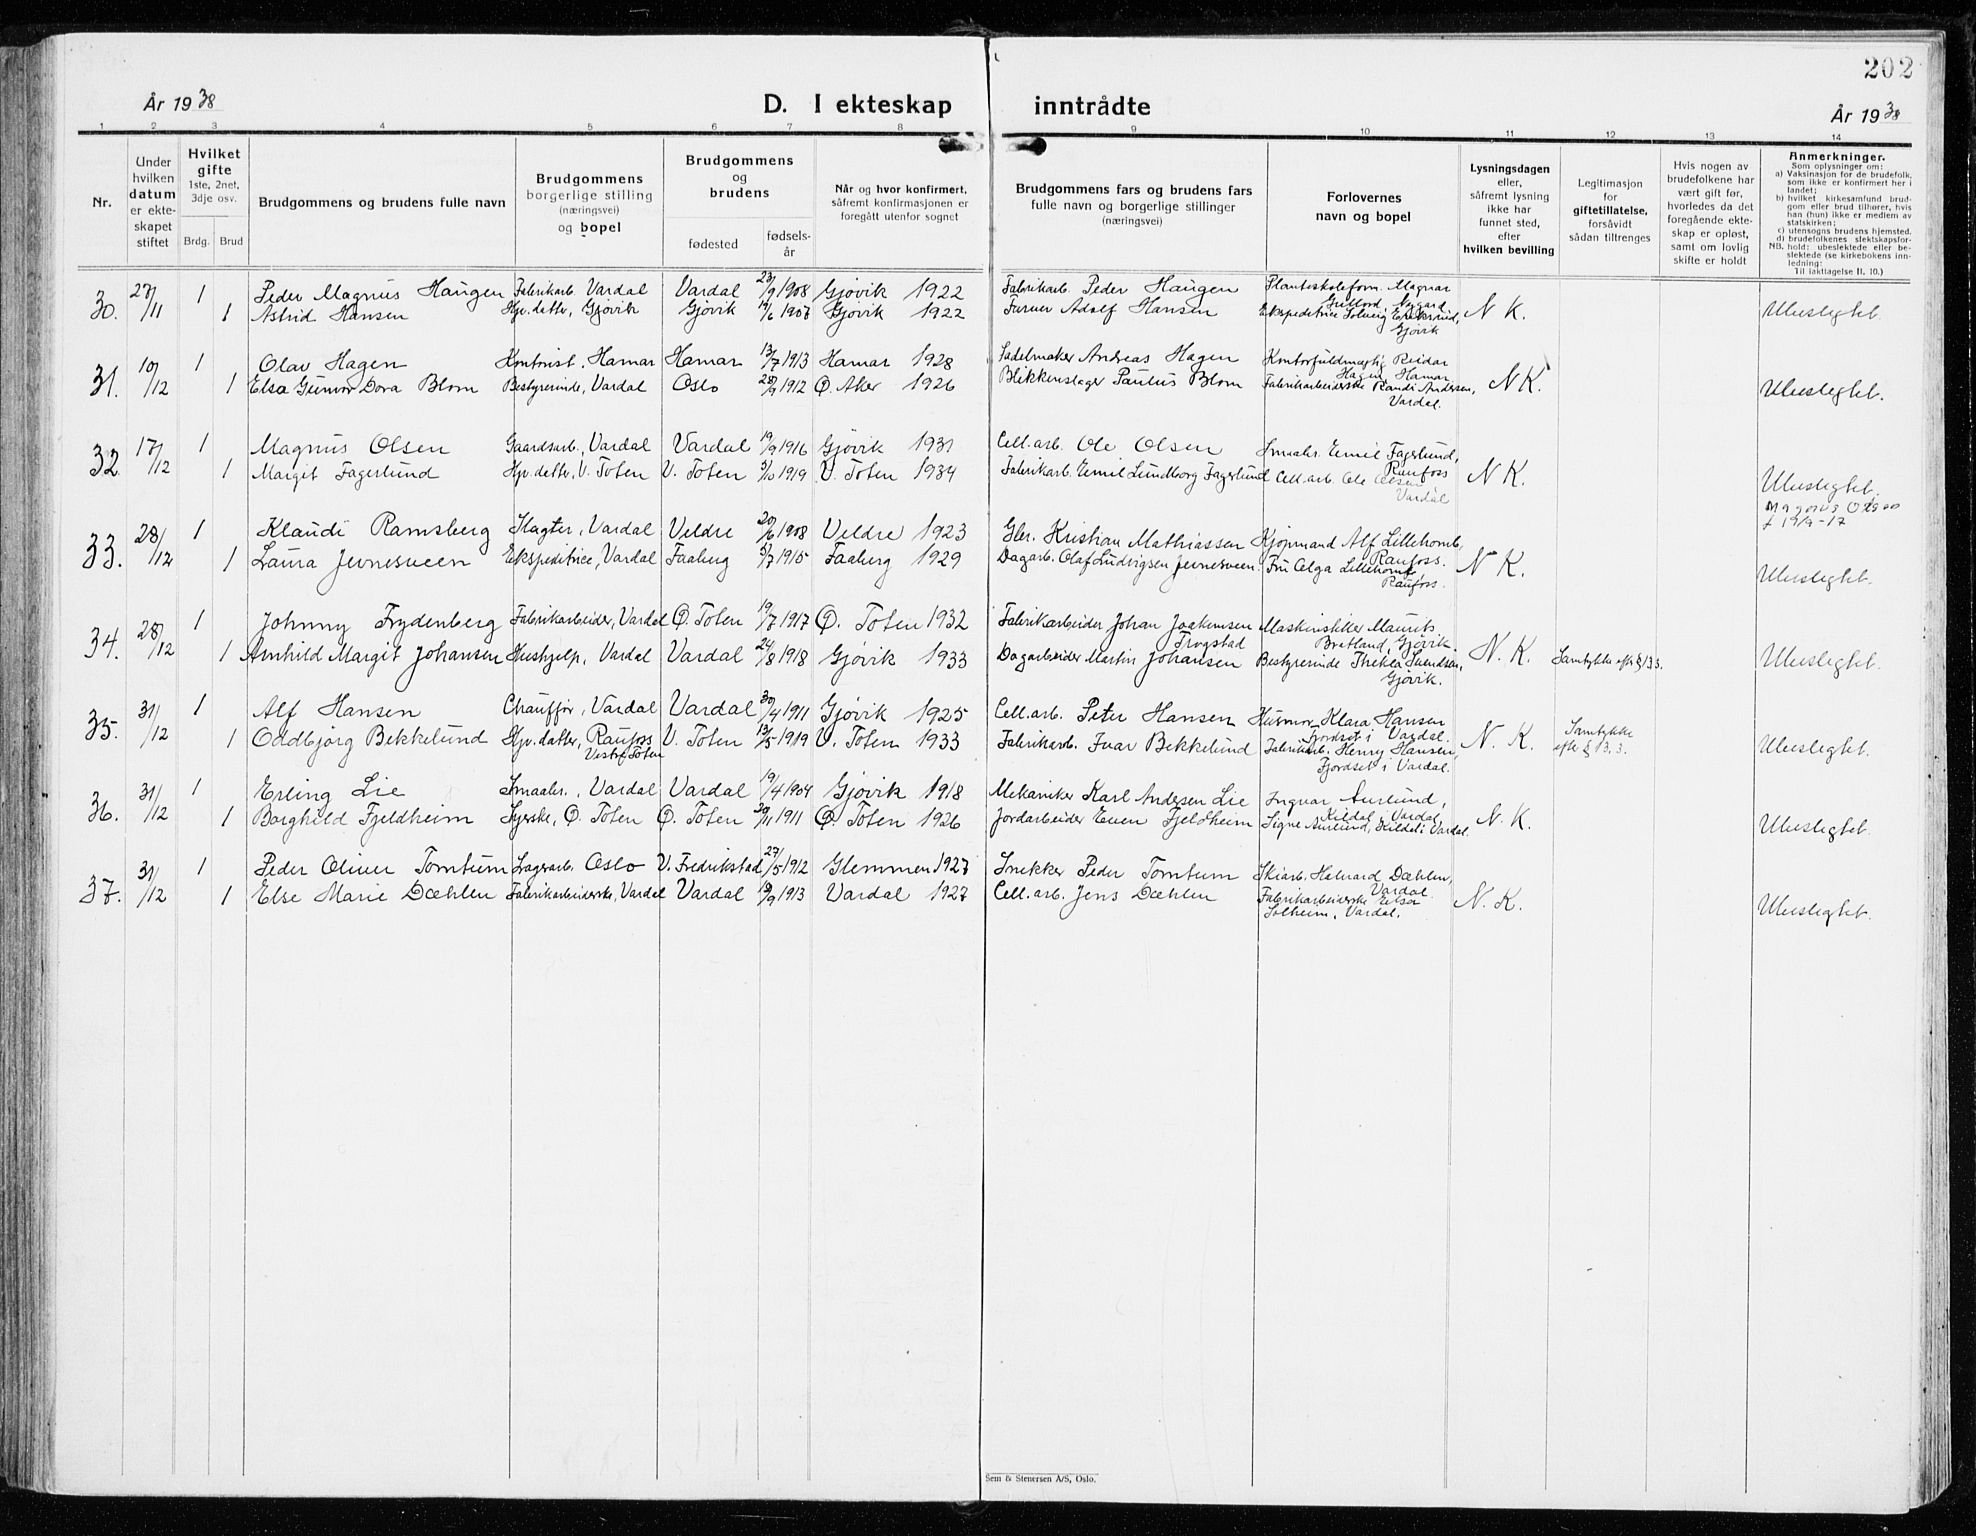 202
År 1938
D. I ekteskap inntrådte
År 1938
1 2 3 4 5 6 7 8 9 10 11 12 13 14
Nr.
Under hvilken datum er ekteskapet stiftet
Hvilket gifte 1ste, 2net, 3dje osv.
Brdg. Brud
Brudgommens og brudens fulle navn
Brudgommens borgerlige stilling (næringsvei) og bopel
Brudgommens og brudens
fødested
fødselsår
Når og hvor konfirmert, såfremt konfirmasjonen er foregått utenfor sognet
Brudgommens fars og brudens fars fulle navn og borgerlige stillinger (næringsvei)
Forlovernes navn og bopel
Lysningsdagen eller, såfremt lysning ikke har funnet sted, efter hvilken bevilling
Legitimasjon for giftetillatelse, forsåvidt sådan tiltrenges
Hvis nogen av brudefolkene har vært gift før, hvorledes da det foregående ekteskap er opløst, samt om lovlig skifte er holdt
Anmerkninger.
Som oplysninger om:
a) Vaksinasjon for de brudefolk, som ikke er konfirmert her i landet;
b) hvilket kirkesamfund brudgom eller brud tilhører, hvis han (hun) ikke er medlem av statskirken;
c) utensogns brudens hjemsted.
d) brudefolkenes slektskapsforhold: ubeslektede eller beslektede (se kirkebokens innledning:
NB.
Til iakttagelse II. 10.)
30. 27/11 1 Peder Magnus Haugen Fabrikarb. Vardal Vardal 23/9 1908 Gjøvik 1922 Fabrikarb. Peder Haugen Planteskoleform. Magnar Nygard
1 Astrid Hansen Hjv. datter, Gjøvik Gjøvik 1907 Gjøvik 1922 Adolf Hansen Ekspeditrice Solveig Eriksrud, Gjøvik N K. Ubeslegtet.
31. 10/12 1 Olav Hagen Kontorist, Hamar Hamar 13/7 1913 Hamar 1928 Sadelmaker Andreas Hagen Kontorfuldmægtig Reidar Hagen Hamar
1 Elsa Gunvor Dora Blom Bestyrerinde, Vardal Oslo 1912 Ø. Aker 1926 Blikkenslager Paulus Blom Fabrikarbeiderske Randi Andersen, Vardal. N K. Ubeslegtet.
32 17/12 1 Magnus Olsen Gaardsarb., Vardal Vardal 19/9 1916 Gjøvik 1931 Cell. arb. Ole Olsen Smaabr. Emil Fagerlund, Raufoss
1 Margit Fagerlund Hjv. datter, V. Toten V. Toten 1919 V. Toten 1934 Fabrikarb. Emil Lundborg Fagerlund Cell. arb. Ole Olsen Vardal N K. Ubeslegtet.
Magnus Olsen
f 19/9-17
33. 28/12 1 Klaudi Ramsberg Slagter, Vardal Veldre 20/6 1908 Veldre 1923 Gbr. Kristian Mathiassen Kjøpmand Alf Lillehomb, Raufoss.
1 Laura Jevnesveen Ekspeditrice, Vardal Faaberg 5/7 1915 Faaberg 1929 Dagarb. Olaf Ludvigsen Jevnesveen. Fru Olga Raufoss. N K. Ubeslegtet.
34. 28/12 1 Johnny Frydenberg Fabrikarbeider, Vardal Ø. Toten 19/7 1917 Ø. Toten 1932 Fabrikarbeider Johan Joakimsen Trogstad Maurits Bratland, Gjøvik.
1 Arnhild Margit Johansen Hushjelp, Vardal Vardal 24/8 1918 Gjøvik 1933 Dagarbeider Martin Johansen Bestyrerinde Thekla Svendsen, Gjøvik. N. K. Samtykke efter § 13 3. Ubeslegtet.
35. 31/12 1 Alf Hansen Chauffør, Vardal Vardal 30/4 1911 Gjøvik 1925 Cell. arb. Peter Hansen Husmor Klara Hansen Fjordset i Vardal.
1 Oddbjørg Bekkelund Hjv. datter, Raufoss Vestre Toten V. Toten 13/5 1919 V. Toten 1933 Fabrikarb. Ivar Bekkelund Fabrikarb. Henry Hansen, Fjordset i Vardal. N. K. Samtykke efter § 13. 3. Ubeslegtet.
36. 31/12 1 Erling Lie Smaabr., Vardal Vardal 19/4 1904 Gjøvik 1918 Mekaniker Karl Andersen Lie Ingvar Aurlund, Kildal i Vardal
1 Borghild Fjeldheim Syerske, Ø. Toten Ø. Toten 30/11 1911 Ø. Toten 1926 Jordarbeider Even Fjeldheim Signe Aurlund, Kildal i Vardal. N. K. Ubeslegtet.
37. 31/12 1 Peder Oliver Tomtum Lagerarb. Oslo V. Fredrikstad 27/5 1912 Glemmen 1927 Snekker Peder Tomtum Skiarb. Halvard Dæhlen, Vardal
1 Else Marie Dæhlen Fabrikarbeiderske, Vardal Vardal 1913 Vardal 1927 Cell. arb. Jens Dæhlen Fabrikarbeiderske Solheim, Vardal. N. K. Ubeslegtet.
Sem & Stenersen A/S, Oslo.